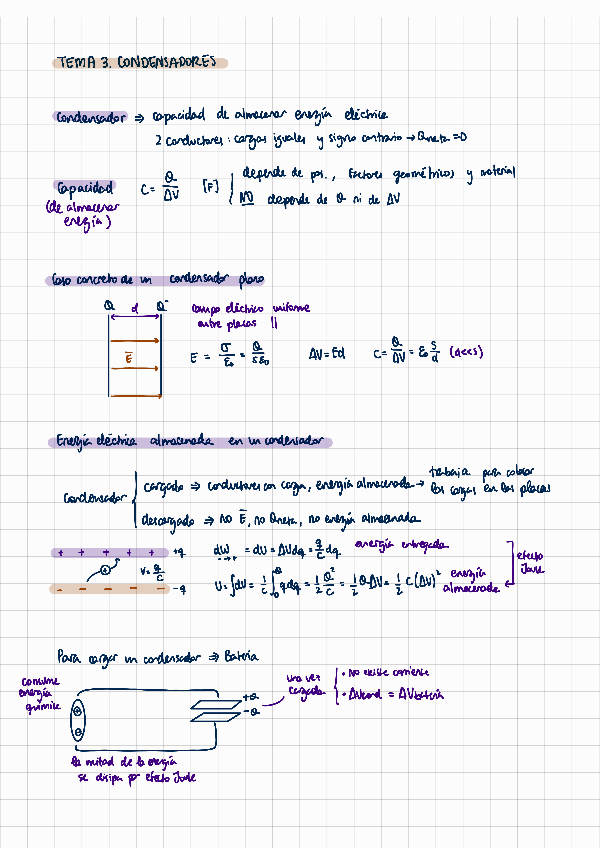 TEMA 3. CONDENSADORES
Condensador ⇒ capacidad de almacenar energía eléctrica
2 conductores: cargas iguales y signo contrario → Qneta = 0
Capacidad C = Q/ΔV [F] depende de pos., factores geométricos y material
(de almacenar energía) NO depende de Q ni de ΔV
Caso concreto de un condensador plano
Q d Q⁻ campo eléctrico uniforme
entre placas ||
E E = σ/ε₀ = Q/Sε₀ ΔV = Ed C = Q/ΔV = ε₀ S/d
Energía eléctrica almacenada en un condensador
Condensador
cargado ⇒ conductores con carga, energía almacenada → trabaja para colocar
las cargas en las placas
descargado ⇒ NO E, no Qneta, no energía almacenada
+ + + + + +q dW = dU = ΔVdq = q/C dq energía entregada
V = q/C
efecto Joule
- - - - - -q U = ∫dU = 1/C ∫₀Q qdq = 1/2 Q²/C = 1/2 QΔV = 1/2 C(ΔV)² energía
almacenada
Para cargar un condensador ⇒ Batería
consume
energía
química
+Q
-Q
una vez
cargado
• No existe corriente
• ΔVcond = ΔVbatería
la mitad de la energía
se disipa por efecto Joule